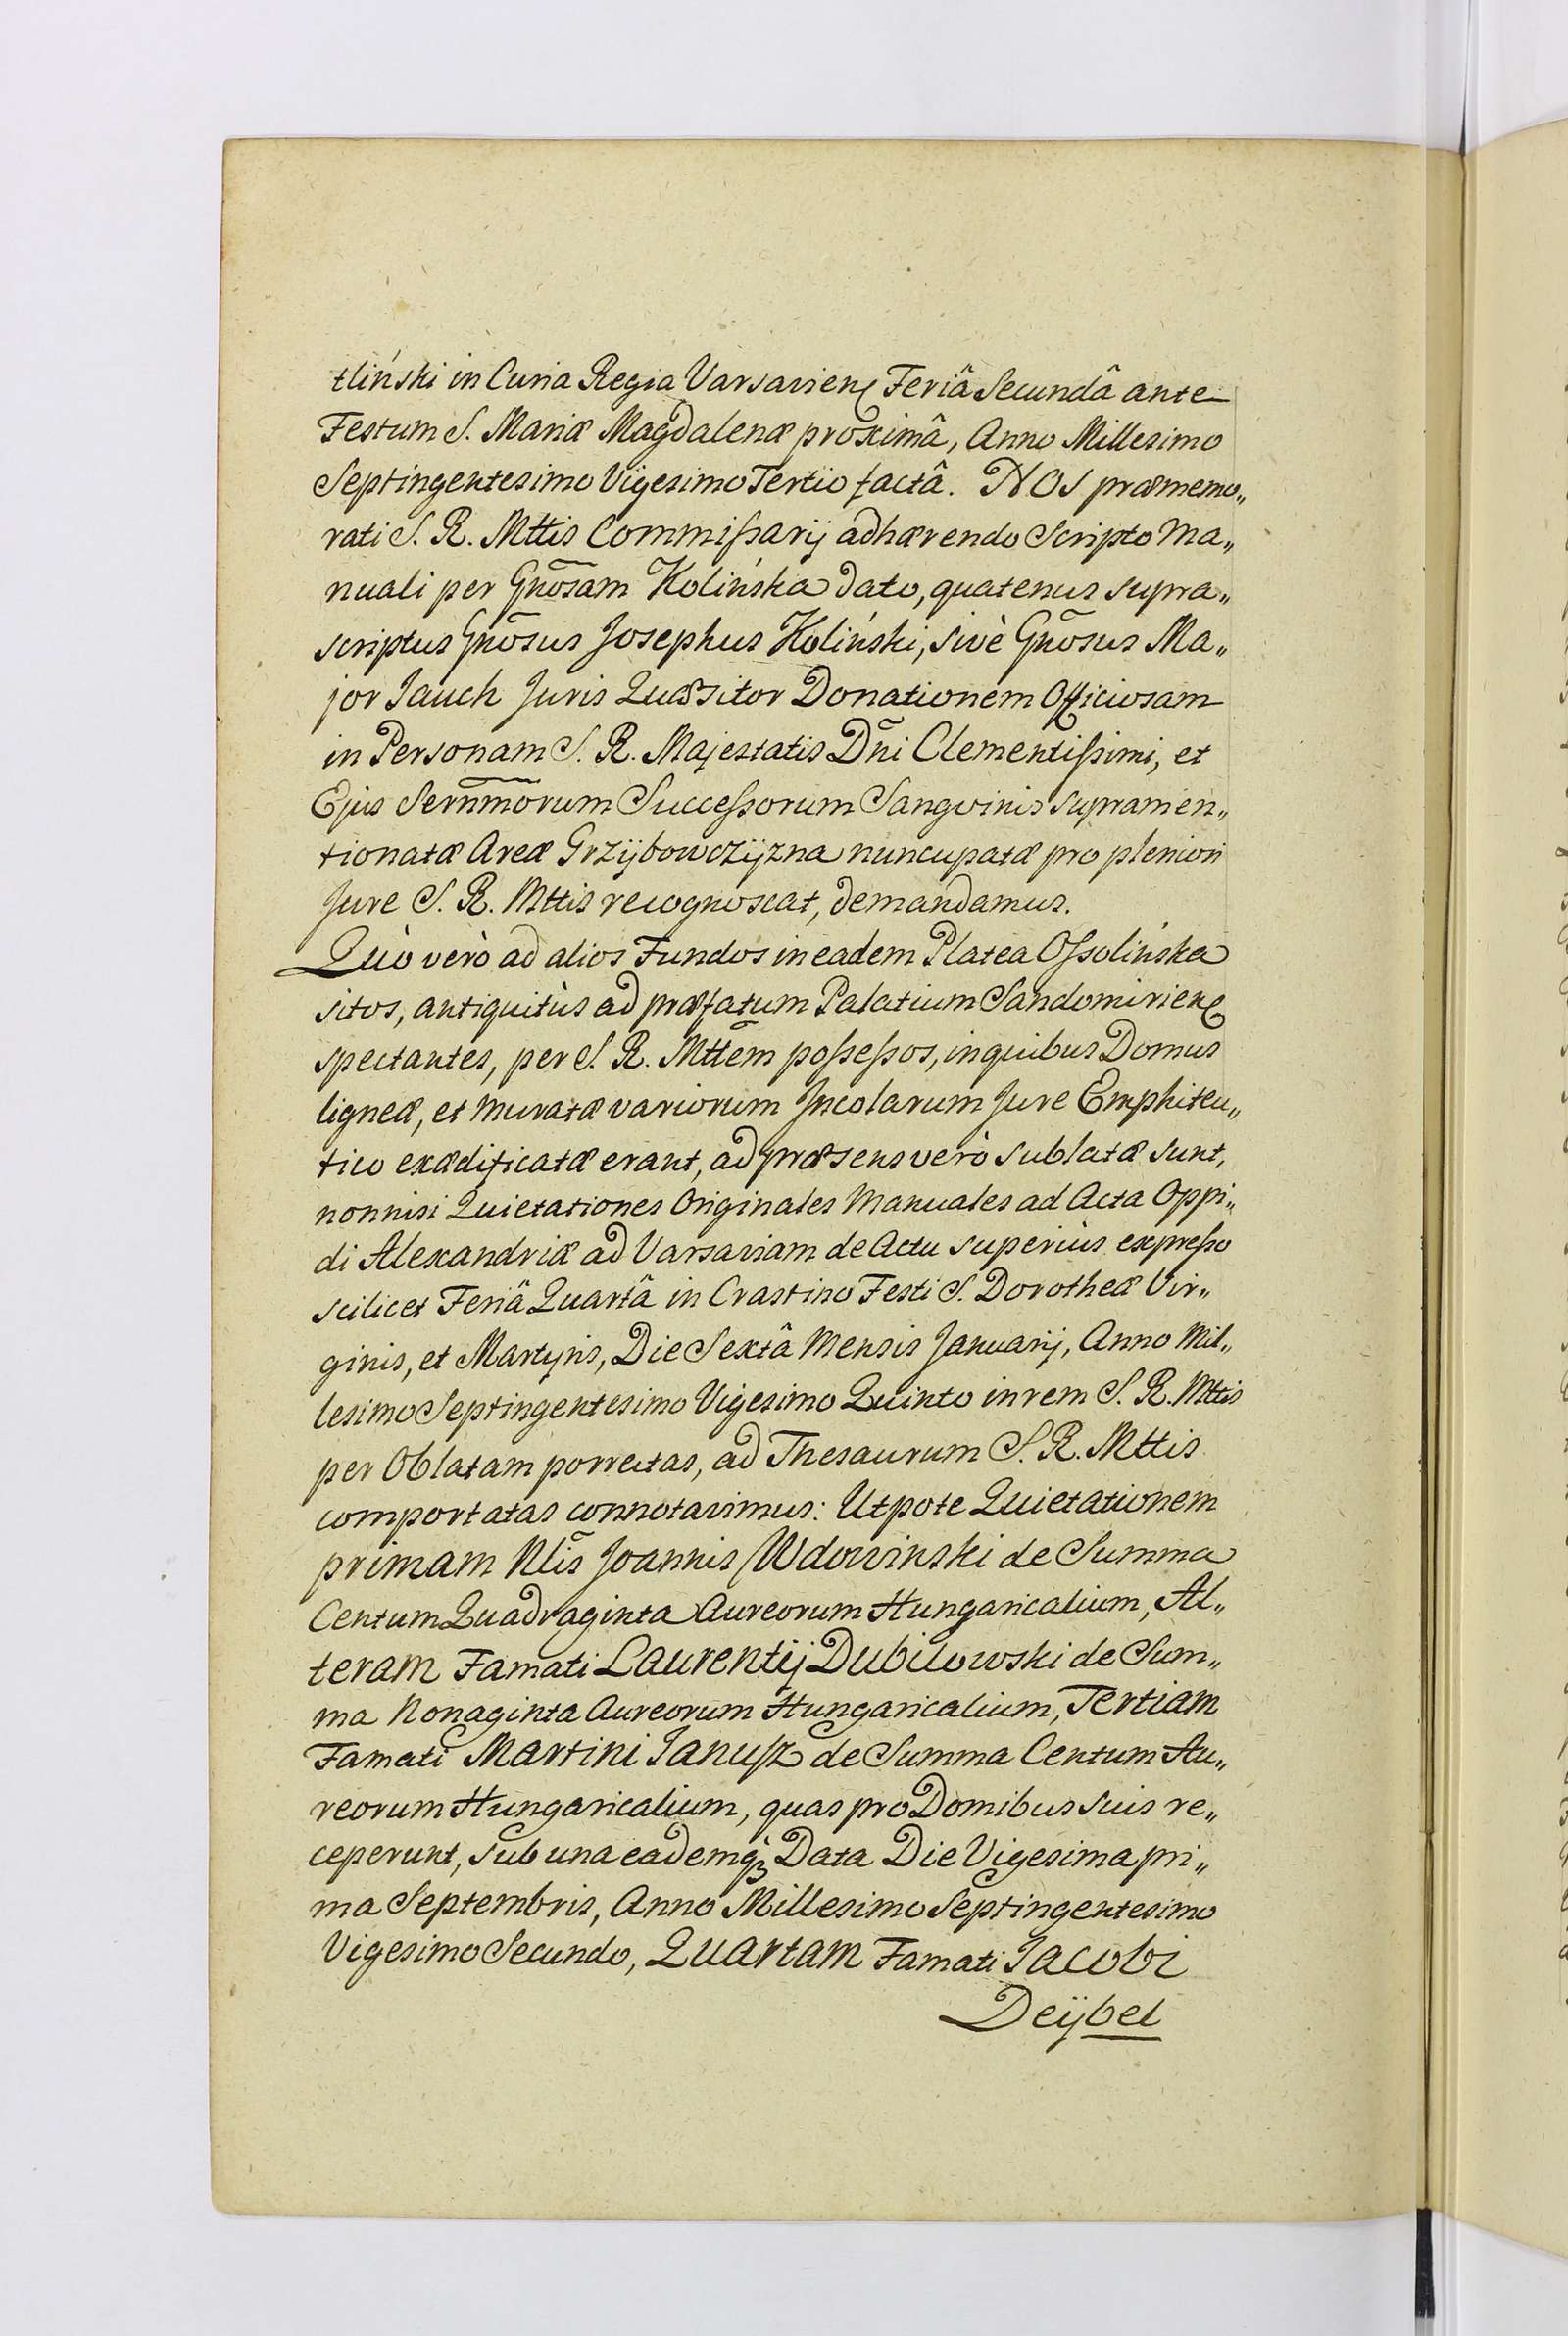 tliński in Curia Regia Varsavien Feriâ Secundâ ante
Festum S. Mariæ Magdalenæ proximâ, Anno Millesimo
Septingentesimo Vigesimo Tertio factâ. NOS præmemo„
rati S. R. Mttis Commißarij adhærendo Scripto Ma„
nuali per Gnõsam Kolińska dato, quatenus supra„
scriptus Gnõsus Josephus Koliński, sivè Gnõsus Ma„
jor Jauch Juris Quæsitor Donationem Officiosam
in Personam S. R. Majestatis Dñi Clementißimi, et
Ejus Sernmõrum Succeßorum Sangvinis supramen„
tionatæ Areæ Grzÿbowczÿzna nuncupatæ pro pleniori
Jure S. R. Mttis recognoscat, demandamus.
Quò verò ad alios Fundos in eadem Platea Oßolińska
sitos, antiquitùs ad præfatum Palatium Sandomirien
spectantes, per S. R. Mttem̃ poßeßos, in quibus Domus
ligneæ, et muratæ variorum Incolarum Jure Emphiteu„
tico exædificatæ erant, ad præsens verò sublatæ sunt,
nonnisi Quietationes Originales Manuales ad Acta Oppi„
di Alexandriæ ad Varsaviam de Actu superiùs expreßo
scilicet Feriâ Quartâ in Crastino Festi S. Dorotheæ Vir„
ginis, et Martyris, Die Sextâ Mensis Januarij, Anno Mil„
lesimo Septingentesimo Vigesimo Quinto in rem S. R. Mttis
per Oblatam porrectas, ad Thesaurum S. R. Mttis
comportatas connotavimus: Utpote Quietationem
primam Nlĩs Joannis Wdowinski de Summa
Centum Quadraginta Aureorum Hungaricalium, Al„
teram Famati Laurentij Dubilowski de Sum„
ma Nonaginta Aureorum Hungaricalium, Tertiam
Famati Martini Janusz de Summa Centum Au„
reorum Hungaricalium, quas pro Domibus suis re„
ceperunt, sub una eademq̃ Data Die Vigesima pri„
ma Septembris, Anno Millesimo Septingentesimo
Vigesimo Secundo, Quartam Famati Jacobi
Deÿbel